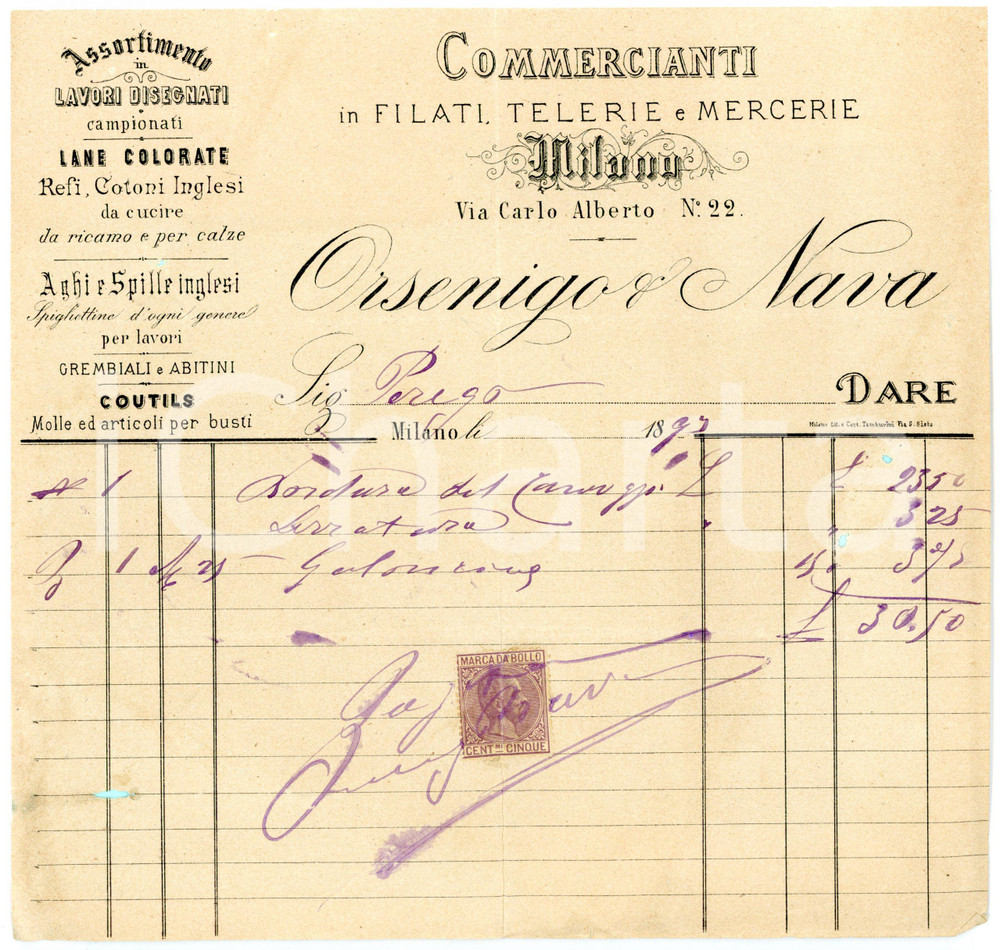 Assortimento
in
LAVORI DISEGNATI
campionati
LANE COLORATE
Refi, Cotoni Inglesi
da cucire
da ricamo e per calze
Aghi e Spille inglesi
Spighettine d'ogni genere
per lavori
GREMBIALI e ABITINI
COUTILS
Molle ed articoli per busti
COMMERCIANTI
in FILATI, TELERIE e MERCERIE
Milano
Via Carlo Alberto N.º 22.
Orsenigo & Nava
Sig. Perego DARE
Milano li 1897
Milano Lit. e Cart. Tamburini Via S. Sisto
1 Bordura £ £ 23 50
Serratura " " 3 25
1 M 25 15 " 3 75
£ 30.50
MARCA DA BOLLO
CENT.MI CINQUE
iCharta